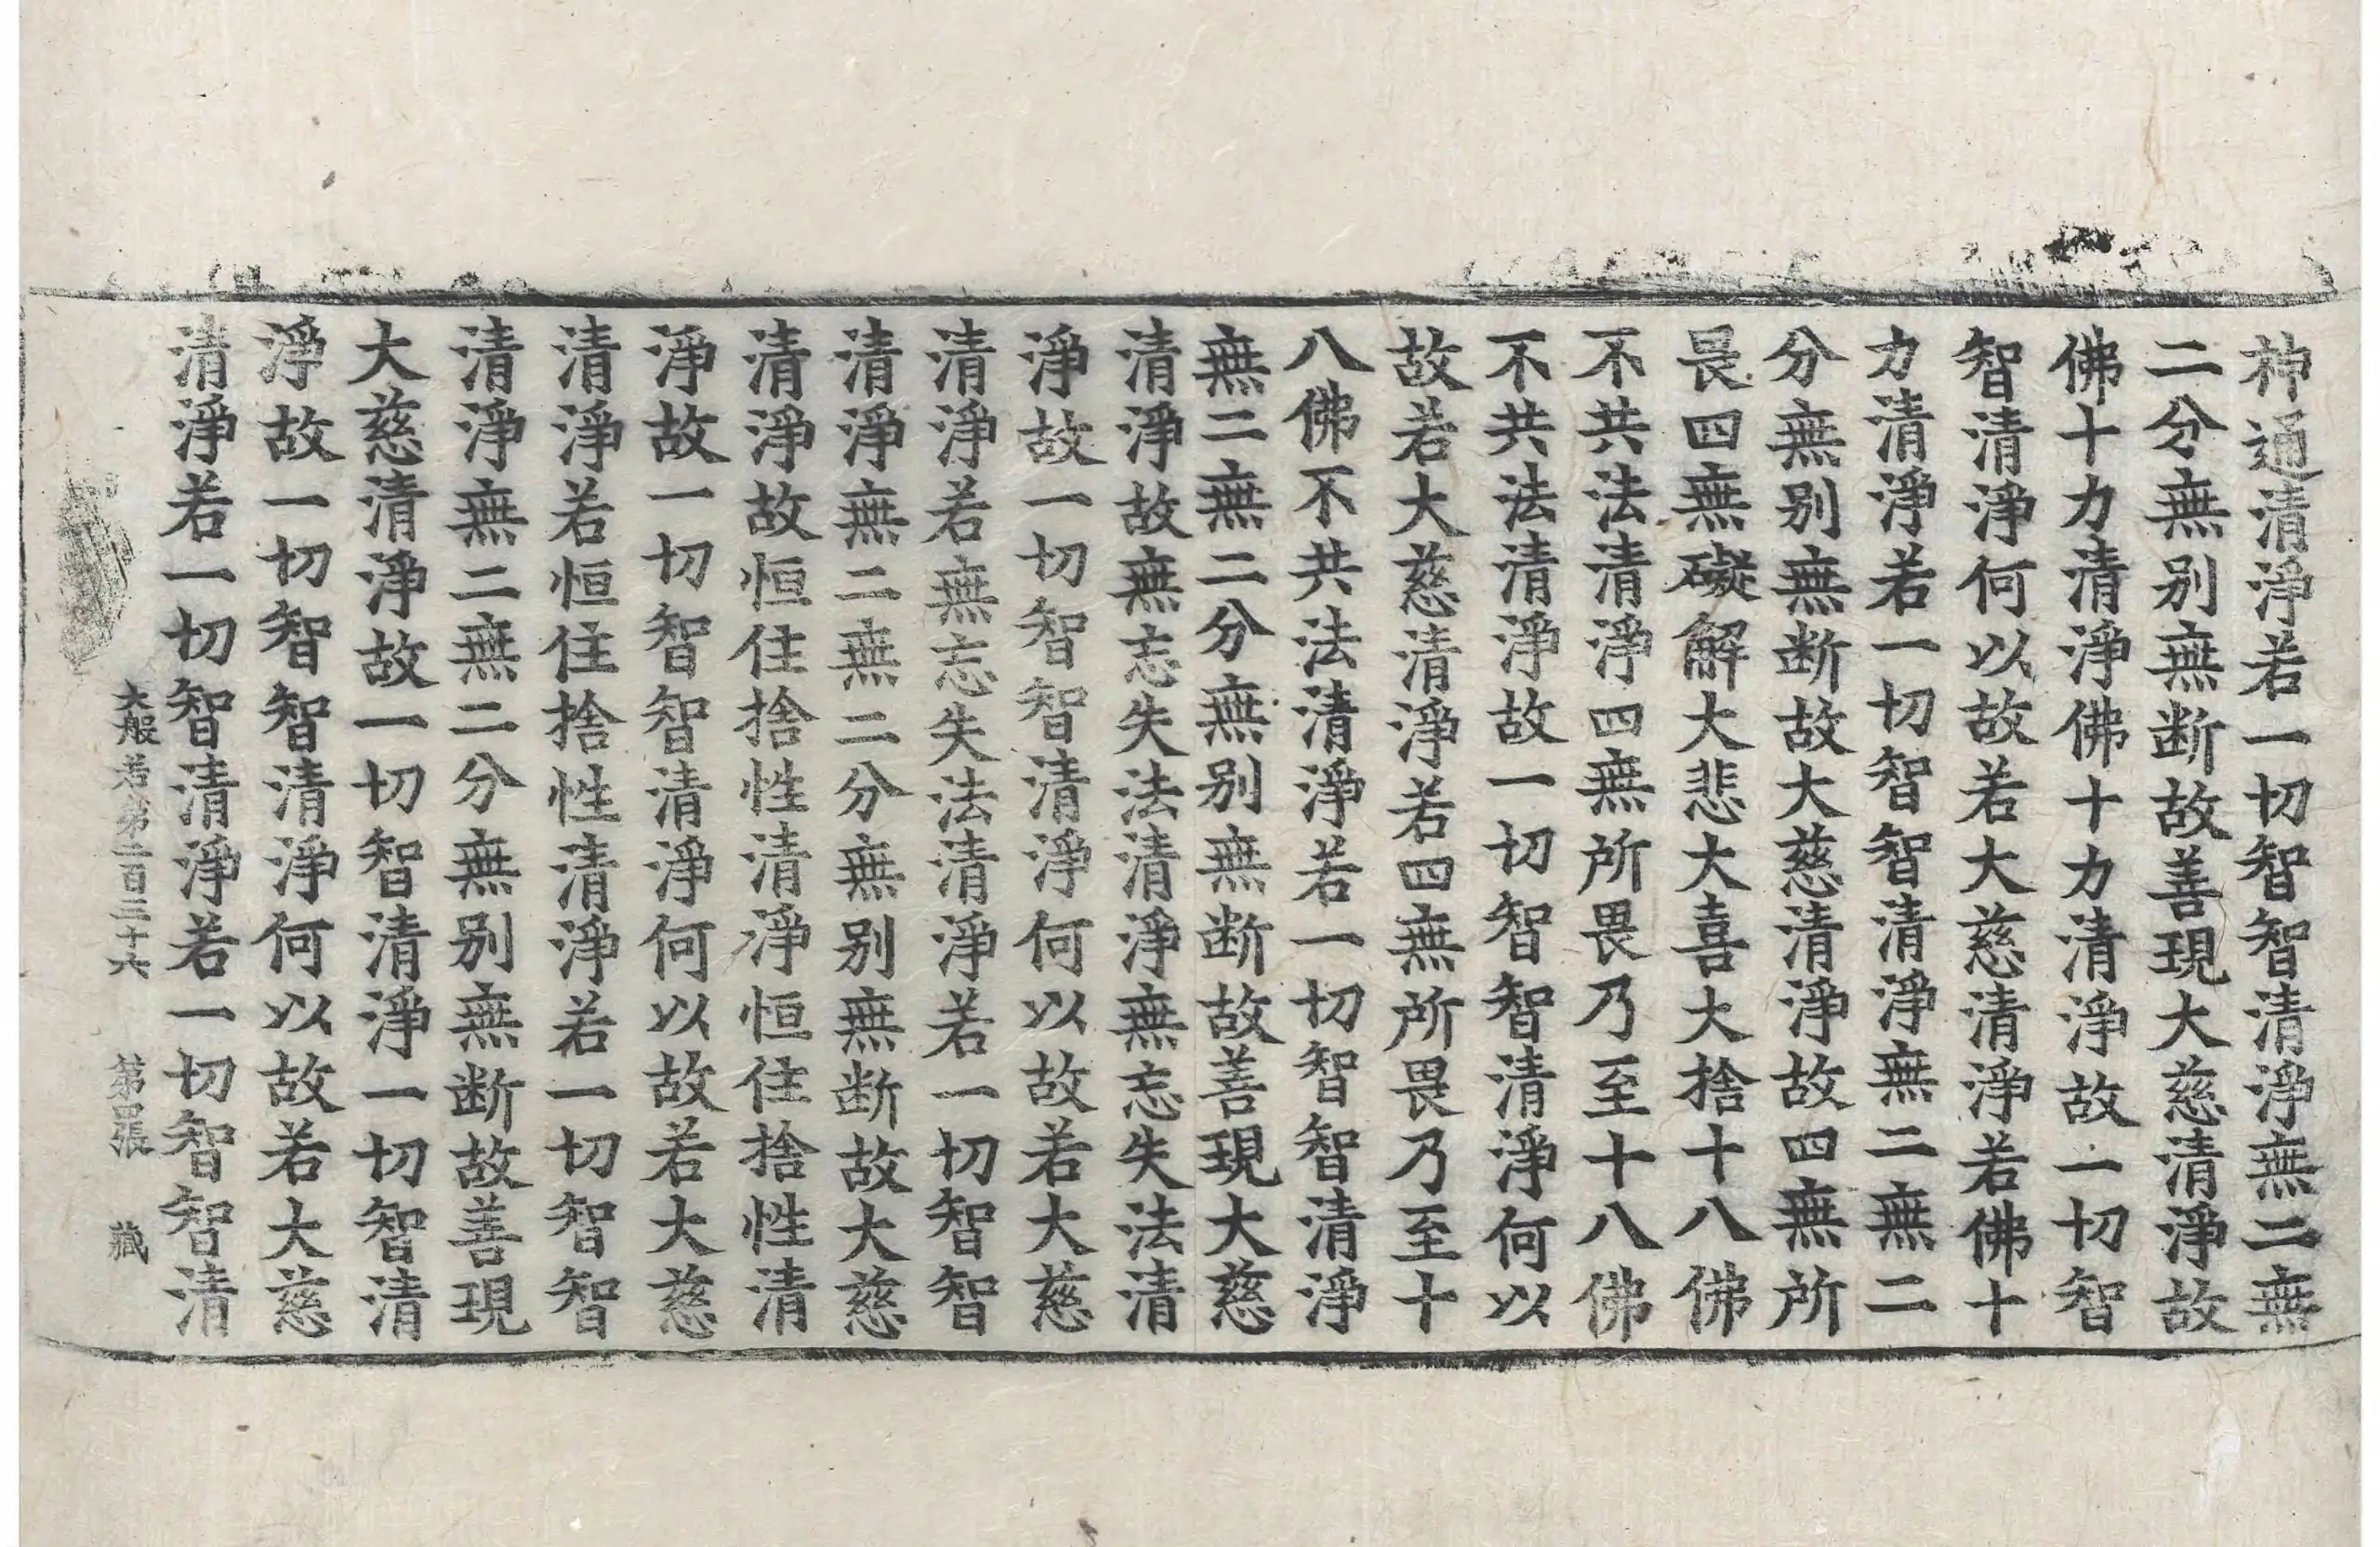 神通清淨若一切智智清淨無二無
二分無别無断故善現大慈清淨故
佛十力清淨佛十力清淨故一切智
智清淨何以故若大慈清淨若佛十
力清淨若一切智智清淨無二無二
分無别無断故大慈清淨故四無所
畏四無礙解大悲大喜大捨十八佛
不共法清淨四無所畏乃至十八佛
不共法清淨故一切智智清淨何以
故若大慈清淨若四無所畏乃至十
八佛不共法清淨若一切智智清淨
無二無二分無别無断故善現大慈
清淨故無忘失法清淨無忘失法清
淨故一切智智清淨何以故若大慈
清淨若無忘失法清淨若一切智智
清淨無二無二分無别無断故大慈
清淨故恒住捨性清淨恒住捨性清
淨故一切智智清淨何以故若大慈
清淨若恒住捨性清淨若一切智智
清淨無二無二分無别無断故善現
大慈清淨故一切智清淨一切智清
淨故一切智智清淨何以故若大慈
清淨若一切智清淨若一切智智清
大般若第二百三十六 第四張 藏